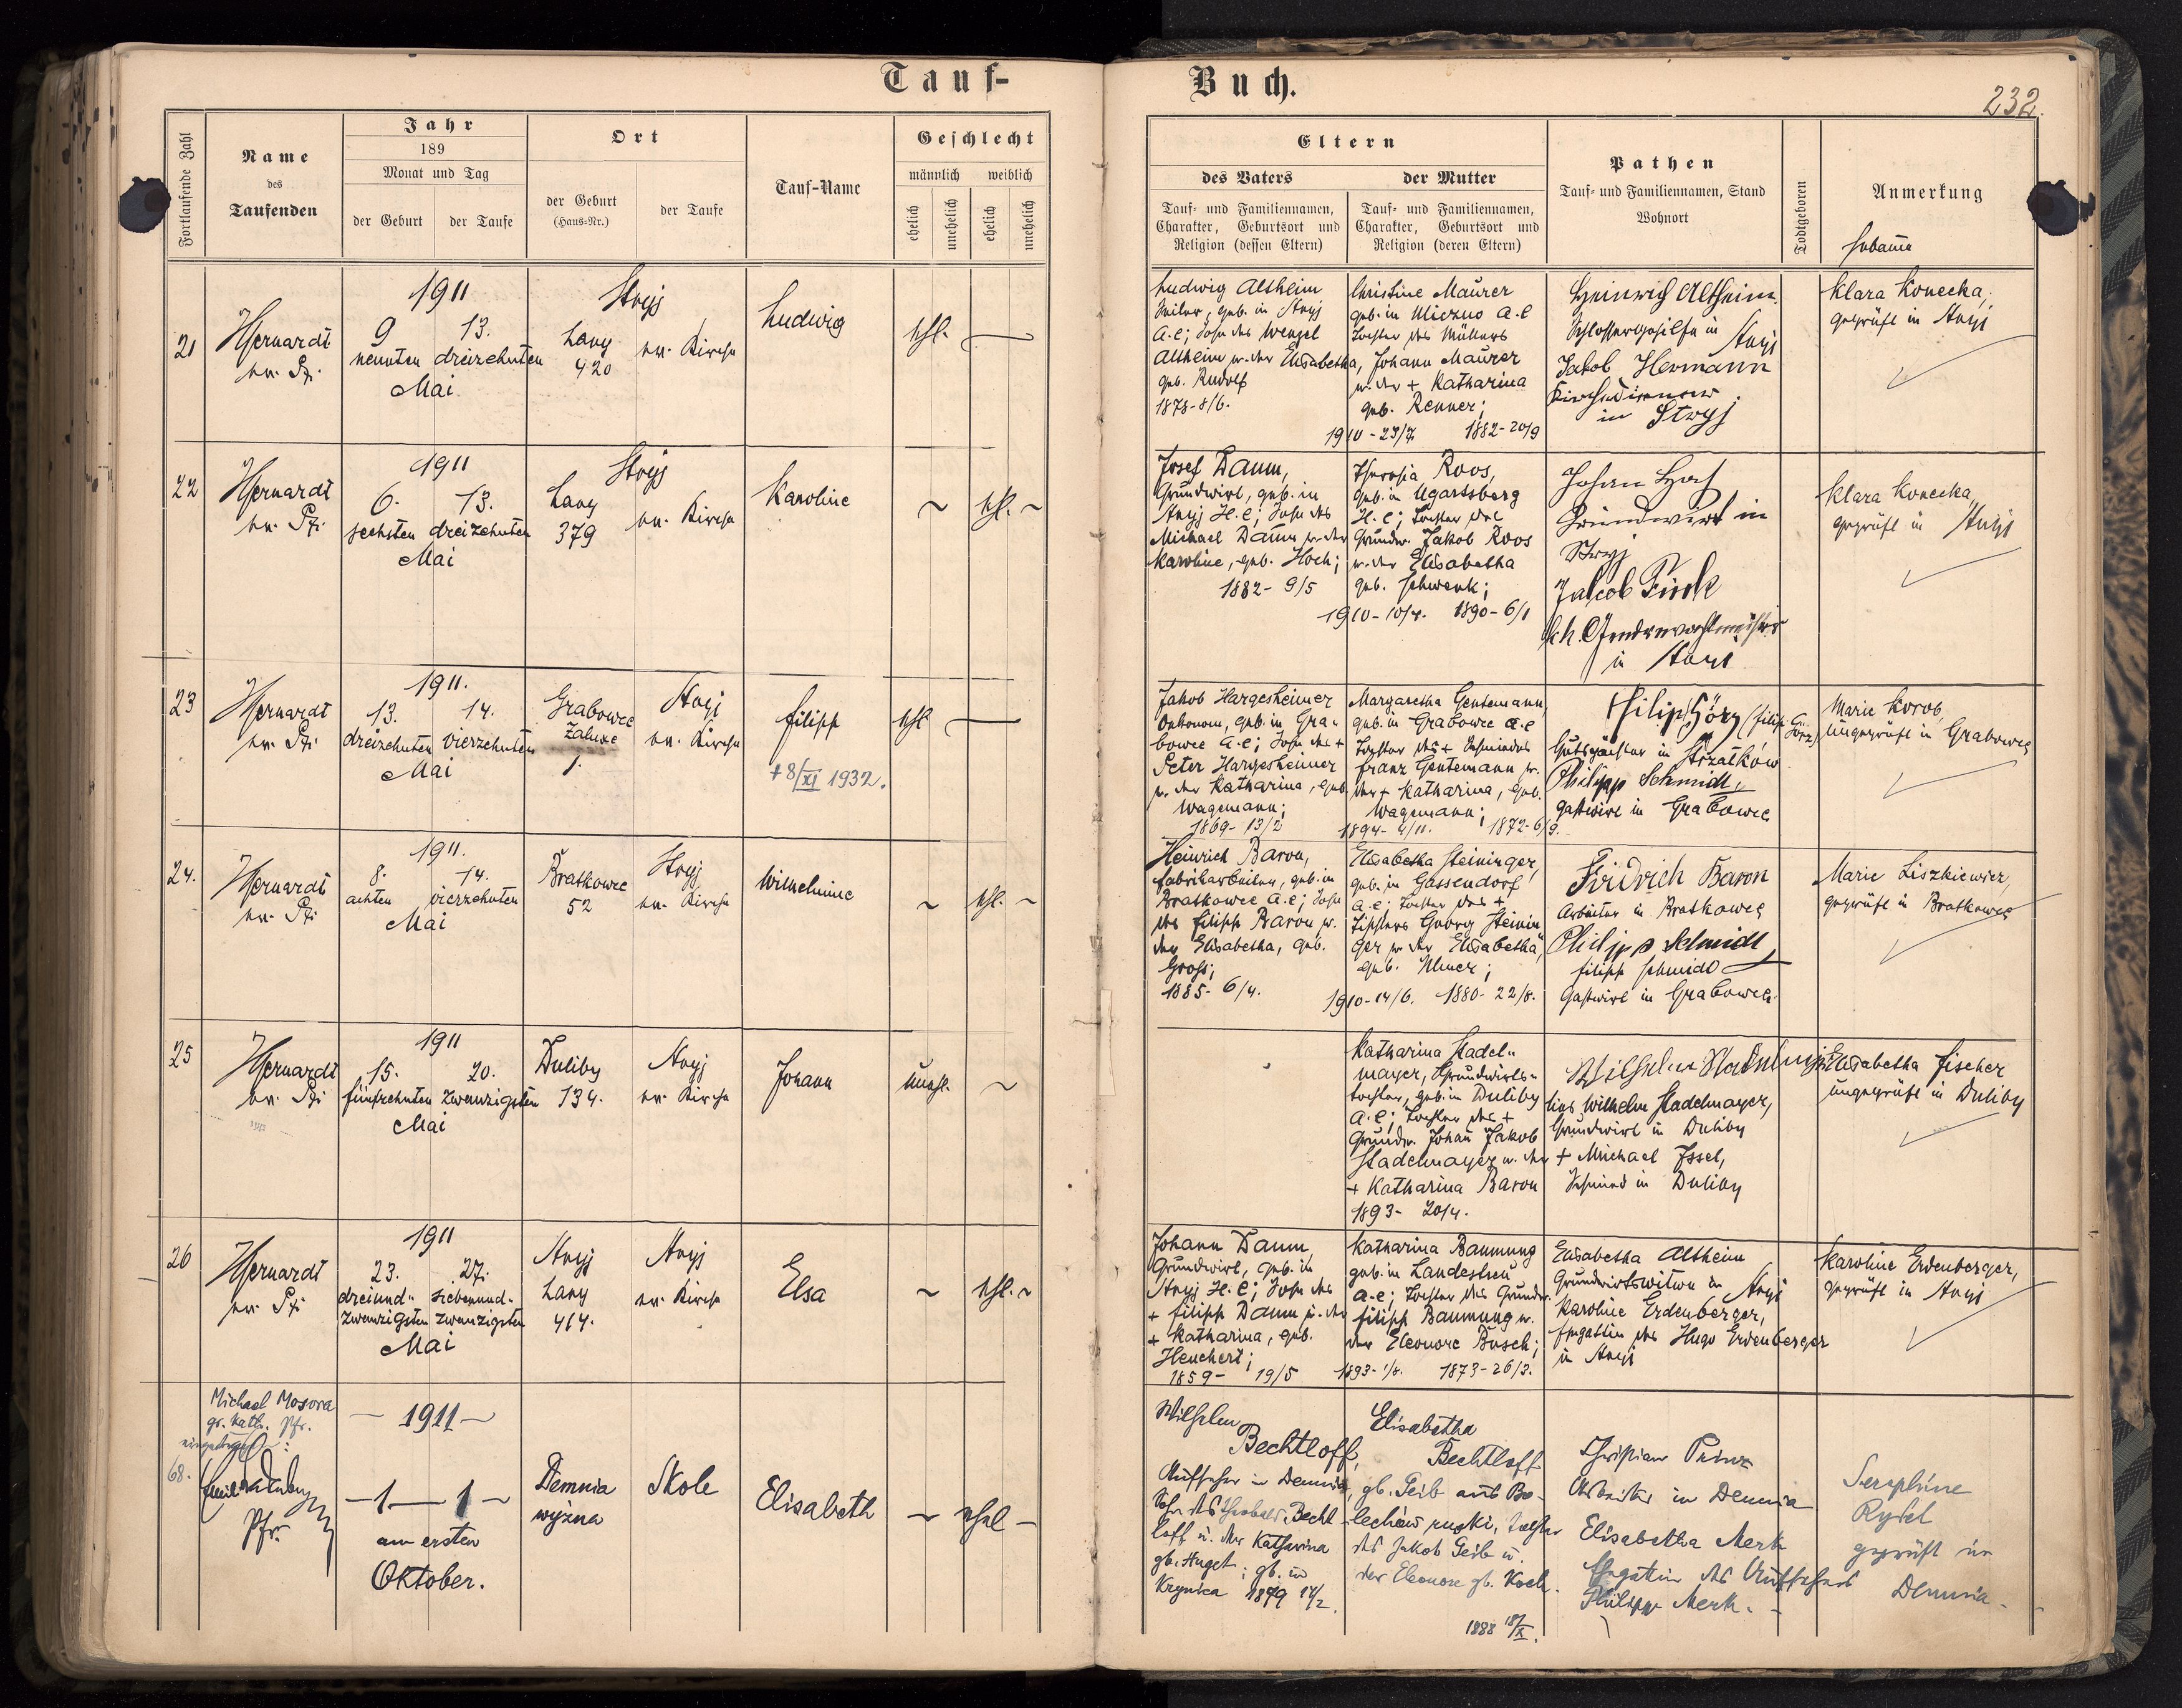 Tauf-
Buch.
232.
Fortlaufende Zahl
Name
des
Taufenden
Jahr
189
Monat und Tag
der Geburt
der Taufe
Ort
der Geburt
(Haus-Nr.)
der Taufe
Tauf-Name
Geschlecht
männlich
weiblich
ehelich
unehelich
ehelich
unehelich
Eltern
des Vaters
der Mutter
Tauf- und Familiennamen,
Charakter, Geburtsort und
Religion (dessen Eltern)
Tauf- und Familiennamen,
Charakter, Geburtsort und
Religion (deren Eltern)
Pathen
Tauf- und Familiennamen, Stand
Wohnort
Todtgeboren
Anmerkung
21
1911
9 13.
neunten dreizehnten
Mai
Stryj
Lany
420
ev. Kirche
Ludwig
ehl.
Ludwig Altheim
geb. in Stryj
A.C; Sohn des Wenzel
Altheim u. der Elisabetha,
geb. Rudolf
1878-8/6.
Christine Maurer
geb. in Miczno A.C
Tochter des Müllers
Johann Maurer
u. der + Katharina
geb. Renner;
1910-23/7. 1882-20/9
Heinrich Altheim
Schlossergehilfe in Stryj
Jakob Hermann
Kirchendiener
in Stryj
Klara Konecka,
geprüft in Stryj
22
1911
6. 13.
sechsten dreizehnten
Mai
Stryj
Lany
379
ev. Kirche
Karoline
ehl.
Josef Daum,
Grundwirt, geb. in
Stryj H.C; Sohn des
Michael Daum u. der
Karoline, geb. Hoch;
1882-9/5
Theresia Roos,
geb. in Ugartsberg
H.C; Tochter des
Grundw. Jakob Roos
u. der Elisabetha
geb. Schwenk;
1910-10/4. 1890-6/1
Johan Hoch
Grundwirt in
Stryj
Jakob Fink
in Stryj
Klara Konecka,
geprüft in Stryj
23
1911.
13. 14.
dreizehnten vierzehnten
Mai
Grabowce
Zaluze
1.
Stryj
ev. Kirche
Filipp
+ 8/XI 1932.
ehl
Jakob Hargesheimer
Oekonom, geb. in Gra-
bowce A.C; Sohn des +
Peter Hargesheimer
u. der Katharina, geb.
Wagemann;
1869-13/2
Margaretha Gentemann,
geb. in Grabowce A.C
Tochter des + Schmiedes
Franz Gentemann u.
der + Katharina, geb.
Wagemann;
1894-4/11. 1872-6/9.
Philip Görz (Filip Görz)
Gutspächter in Strzałków
Philipp Schmidt,
Gastwirt in Grabowce
Marie Korob,
ungeprüft in Grabowce
24.
1911.
8. 14.
achten vierzehnten
Mai
Bratkowce
52
Stryj
ev. Kirche
Wilhelmine
ehl.
Heinrich Baron,
Fabrikarbeiter, geb. in
Bratkowce A.C; Sohn
des Filipp Baron u.
der Elisabetha, geb.
Gross;
1885-6/4.
Elisabetha Steininger,
geb. in Gassendorf
A.C; Tochter des +
Tischlers Georg Steinin
ger u. der Elisabetha,
geb. Ulmer;
1910-14/6. 1880-22/8.
Fridrich Baron
Arbeiter in Bratkowce
Philipp Schmidt
Filipp Schmidt
Gastwirt in Grabowce.
Marie Liszkiewicz,
geprüft in Bratkowce
25
1911
15. 20.
fünfzehnten zwanzigsten
Mai
Duliby
134.
Stryj
ev. Kirche
Johann
unehl.
Katharina Stadel-
mayer, Grundwirts-
tochter, geb. in Duliby
A.C; Tochter des +
Grundw. Johann Jakob
Stadelmayer u. der
+ Katharina Baron
1893-20/4.
Wilhelm Stadelmajer
lies Wilhelm Stadelmayer,
Grundwirt in Duliby
+ Michael Issel,
Schmied in Duliby
Elisabetha Fischer
ungeprüft in Duliby
26
1911
23. 27.
dreiund- siebenund-
zwanzigsten zwanzigsten
Mai
Stryj
Lany
414.
Stryj
ev. Kirche
Elsa
ehl.
Johann Daum,
Grundwirt, geb. in
Stryj H.C; Sohn des
+ Filipp Daum u. der
+ Katharina, geb.
Henchert;
1859- 19/5
Katharina Baumung
geb. in Landestreu
A.C; Tochter des Grundw.
Filipp Baumung u.
der Eleonore Busch;
1893-1/8. 1873-26/3.
Elisabetha Altheim
Grundwirtswitwe in Stryj
Karoline Erdenberger,
Ehegattin des Hugo Erdenberger
in Stryj
Karoline Erdenberger,
geprüft in Stryj
Michael Mosora
gr. kath. Pfr.
68.
Pfr.
1911
1 1
am ersten
Oktober.
Demnia
wyżna
Skole
Elisabeth
ehel
Wilhelm
Bechtloff,
Aufseher in Demnia,
Sohn des Theobald Becht-
loff u. der Katharina
gb. Huget; gb. in
Krynica 1879 14/2.
Elisabetha
Bechtloff
gb. Geib aus Bo-
lechów ruski, Tochter
des Jakob Geib u.
der Eleonore gb. Koch.
1888 18/X.
Christian Prinz
Arbeiter in Demnia
Elisabetha Merk
Ehegattin des Aufsehers
Philipp Merk.
Seraphine
Rydel
geprüft in
Demnia.